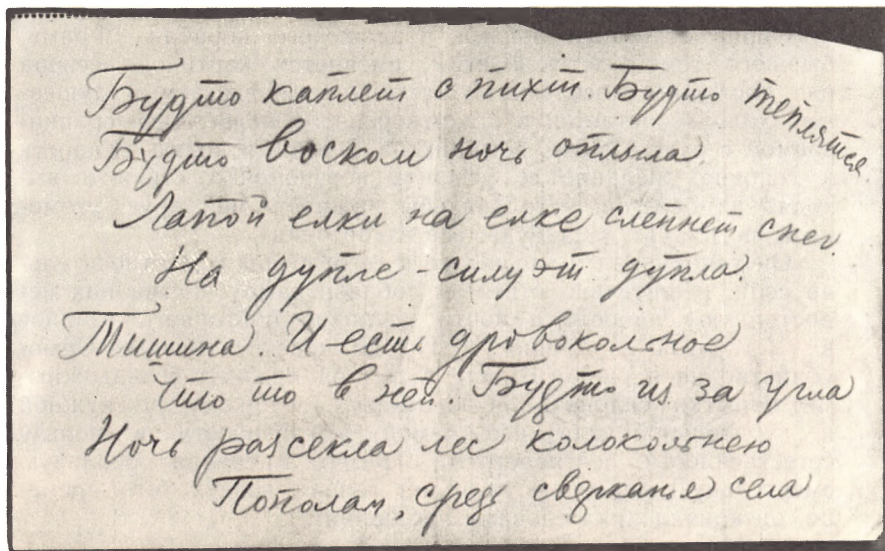 Будто каплет с пихт. Будто теплятся.
Будто воском ночь оплыла.
Лапой елки на елке слепнет снег.
На дупле - силуэт дупла.
Тишина. И есть дровокольное
Что то в ней. Будто из за угла
Ночь разсекла лес колокольнею
Пополам, средь сверканья села